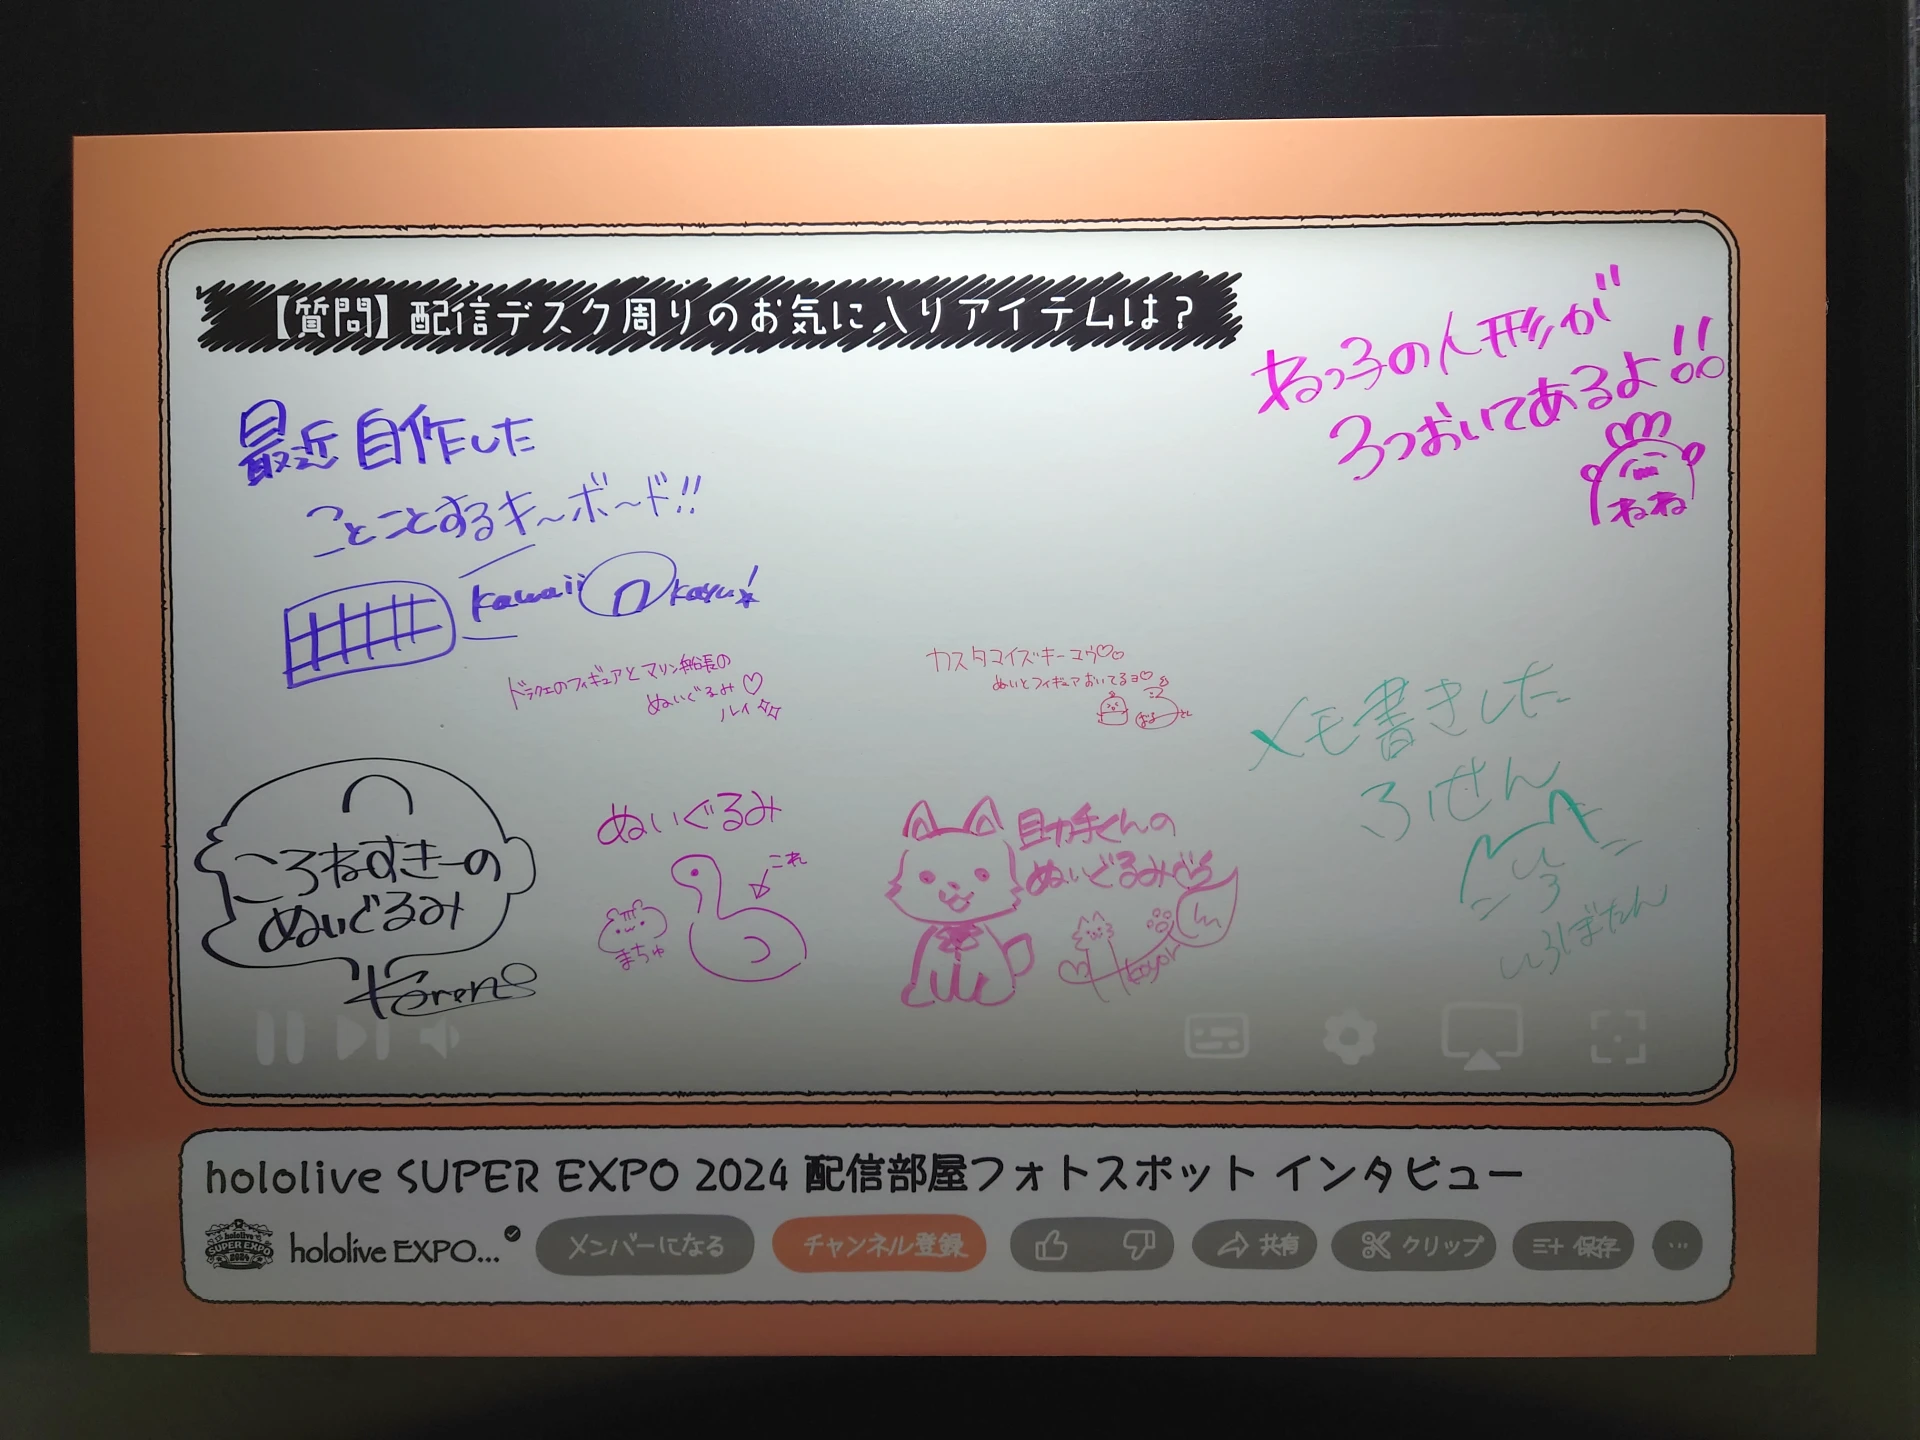 【質問】配信デスク周りのお気に入りアイテムは？
ねっ子の人形が
3つおいてあるよ!!
ねね
最近自作した
ことことするキーボード!!
kawaii
okayu!
ドラクエのフィギュアとマリン船長の
ぬいぐるみ♡
ルイ
カスタマイズキーコウ♡♡
ぬいとフィギュアおいてるヨ♡
おる
メモ書きした
ふせん
ししろ
ししろぼたん
ころねすきーの
ぬいぐるみ
Korone
ぬいぐるみ
これ
まちゅ
助手くんの
ぬいぐるみ
koyori
hololive SUPER EXPO 2024 配信部屋フォトスポット インタビュー
hololive SUPER EXPO 2024
hololive EXPO...
メンバーになる
チャンネル登録
共有
クリップ
保存